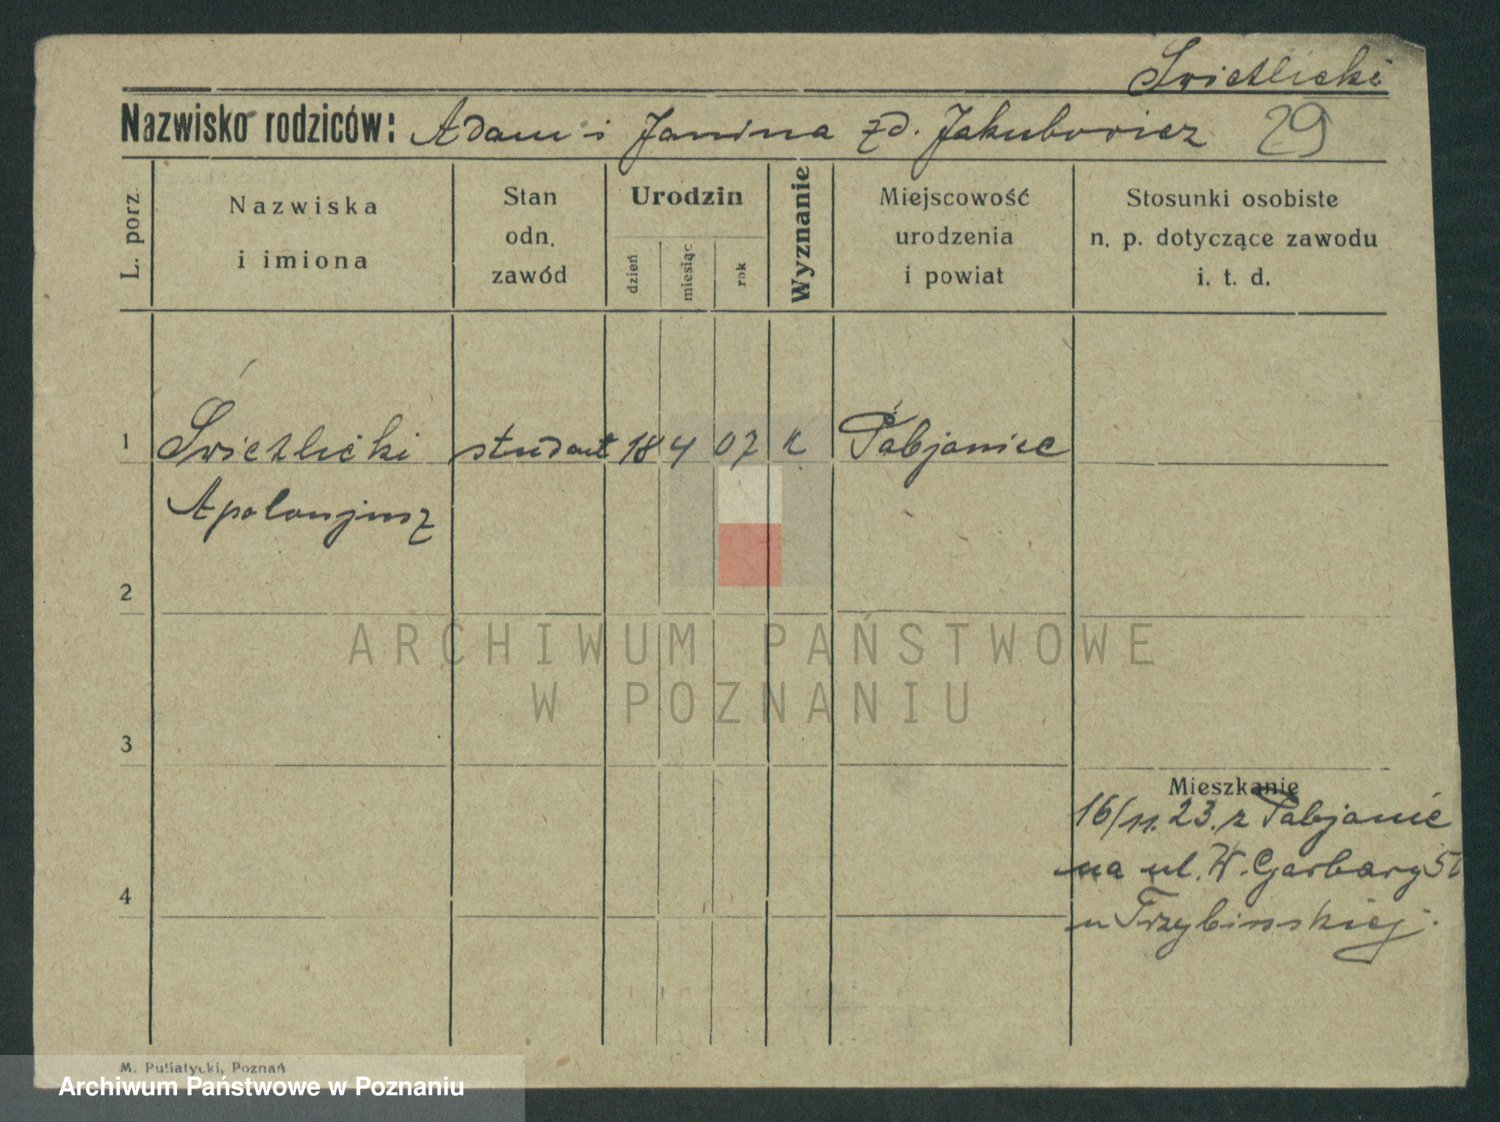 Świetlicki
Nazwisko rodziców: Adam i Janina zd. Jakubowicz 29
L. porz.
Nazwiska
i imiona
Stan
odn.
zawód
Urodzin
dzień
miesiąc
rok
Wyznanie
Miejscowość
urodzenia
i powiat
Stosunki osobiste
n. p. dotyczące zawodu
i. t. d.
1 Świetlicki student 18 4 07 k Pabjanice
Apolonjusz
2
3
4
ARCHIWUM PAŃSTWOWE
W POZNANIU
Mieszkanie
16/11.23. z Pabjanic
na ul. W. Garbary
u Trzybińskiej.
M. Putiatycki, Poznań
Archiwum Państwowe w Poznaniu